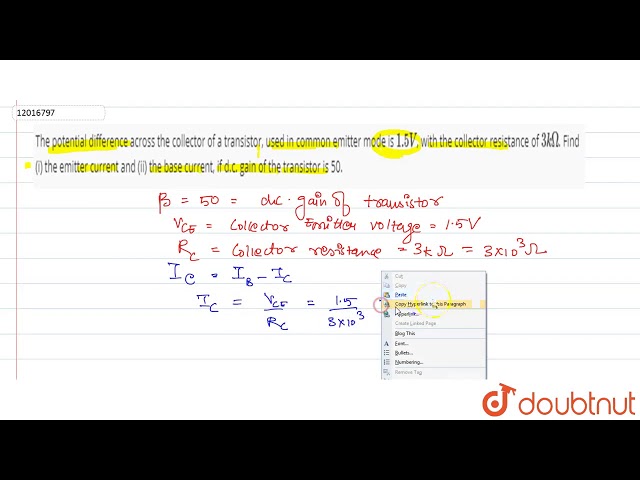 12016797
The potential difference across the collector of a transistor, used in common emitter mode is 1.5V, with the collector resistance of 3kΩ. Find
(i) the emitter current and (ii) the base current, if d.c. gain of the transistor is 50.
β = 50 = d.c. gain of transistor
V_CE = Collector Emitter voltage = 1.5V
R_C = Collector resistance = 3kΩ = 3×10³Ω
I_C = I_B - I_C
I_C = V_CE / R_C = 1.5 / 3×10³
Cut
Copy
Paste
Copy Hyperlink to this Paragraph
Hyperlink...
Create Linked Page
Blog This
Font...
Bullets...
Numbering...
Remove Tag
doubtnut